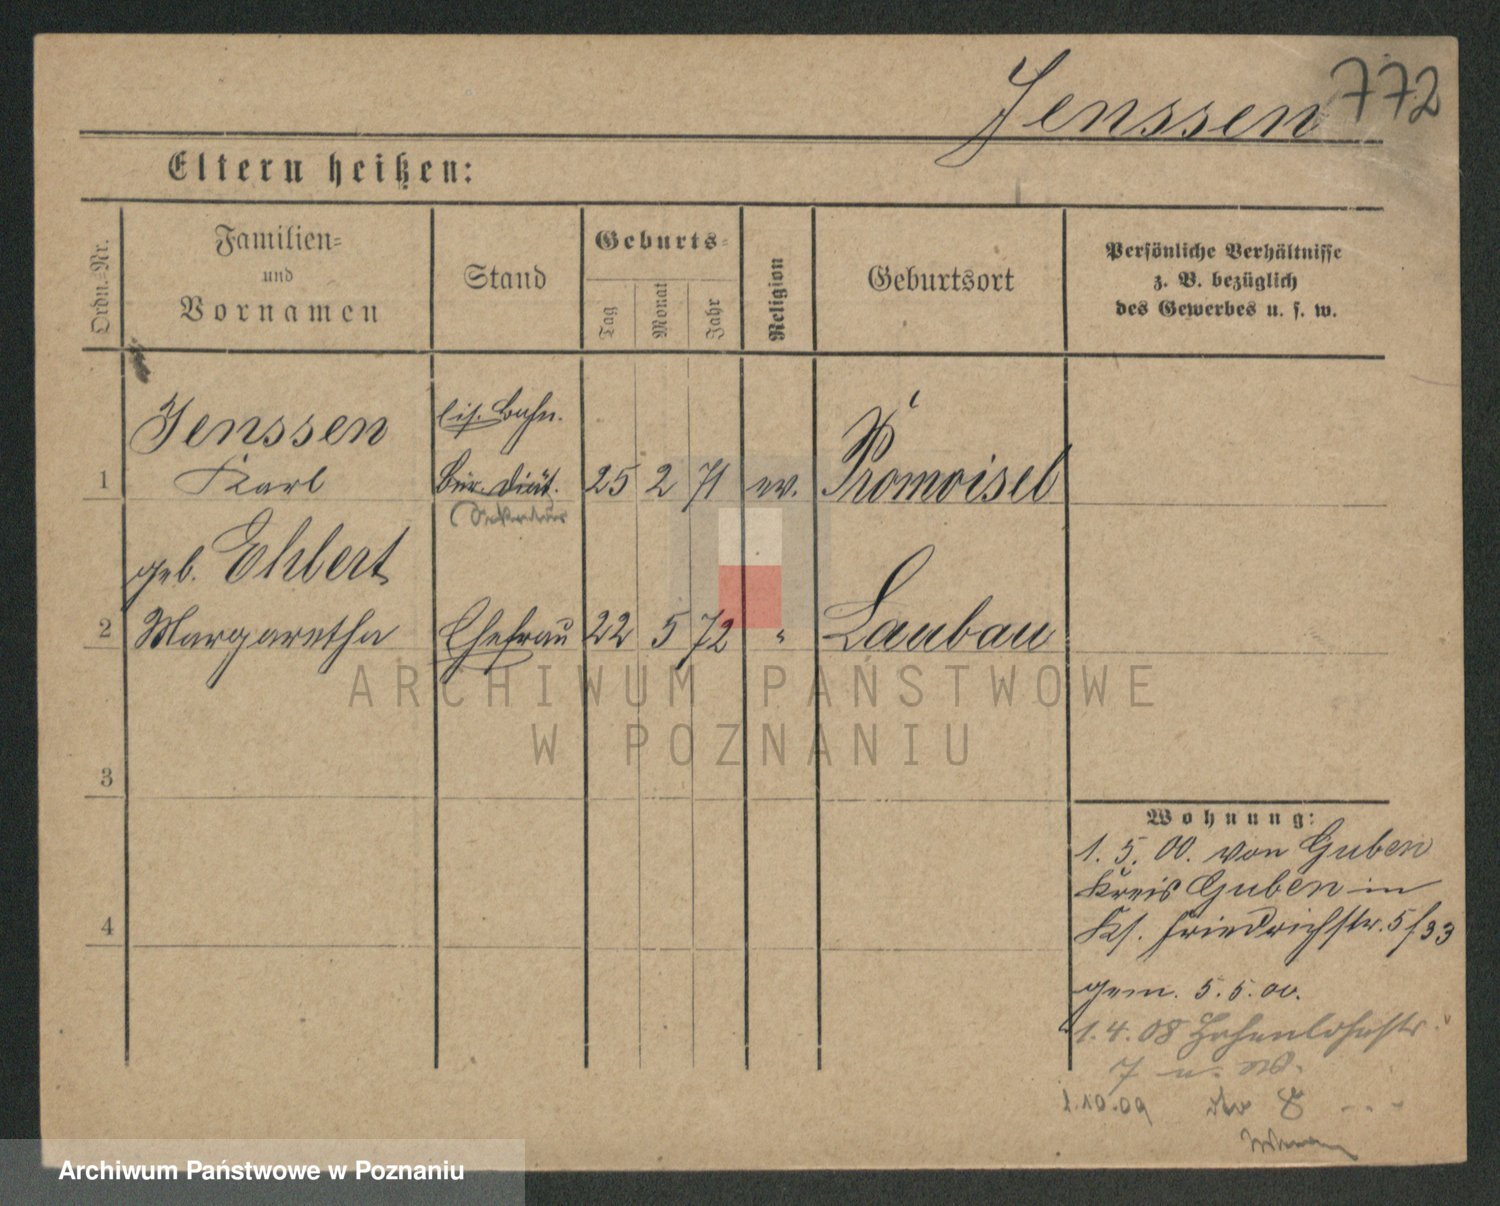 Jenssen 772
Eltern heißen:
Ordn.-Nr.
Familien-
und
Vornamen
Stand
Geburts-
Tag
Monat
Jahr
Religion
Geburtsort
Persönliche Verhältnisse
z. B. bezüglich
des Gewerbes u. s. w.
Jenssen
Eis. Bahn.
1 Karl Bür. Diät. 25 2 71 ev. Promoisel
Sekretär
geb. Ehlert
2 Margaretha Ehefrau 22 5 72 " Laubau
ARCHIWUM PAŃSTWOWE
W POZNANIU
3
Wohnung:
1. 5. 00. von Guben
Kreis Guben in
4
Ks. Friedrichstr. 5/33
gem. 5. 5. 00.
1. 4. 08 Hohenlohestr.
7 u. W.
1.10.09 8
Archiwum Państwowe w Poznaniu